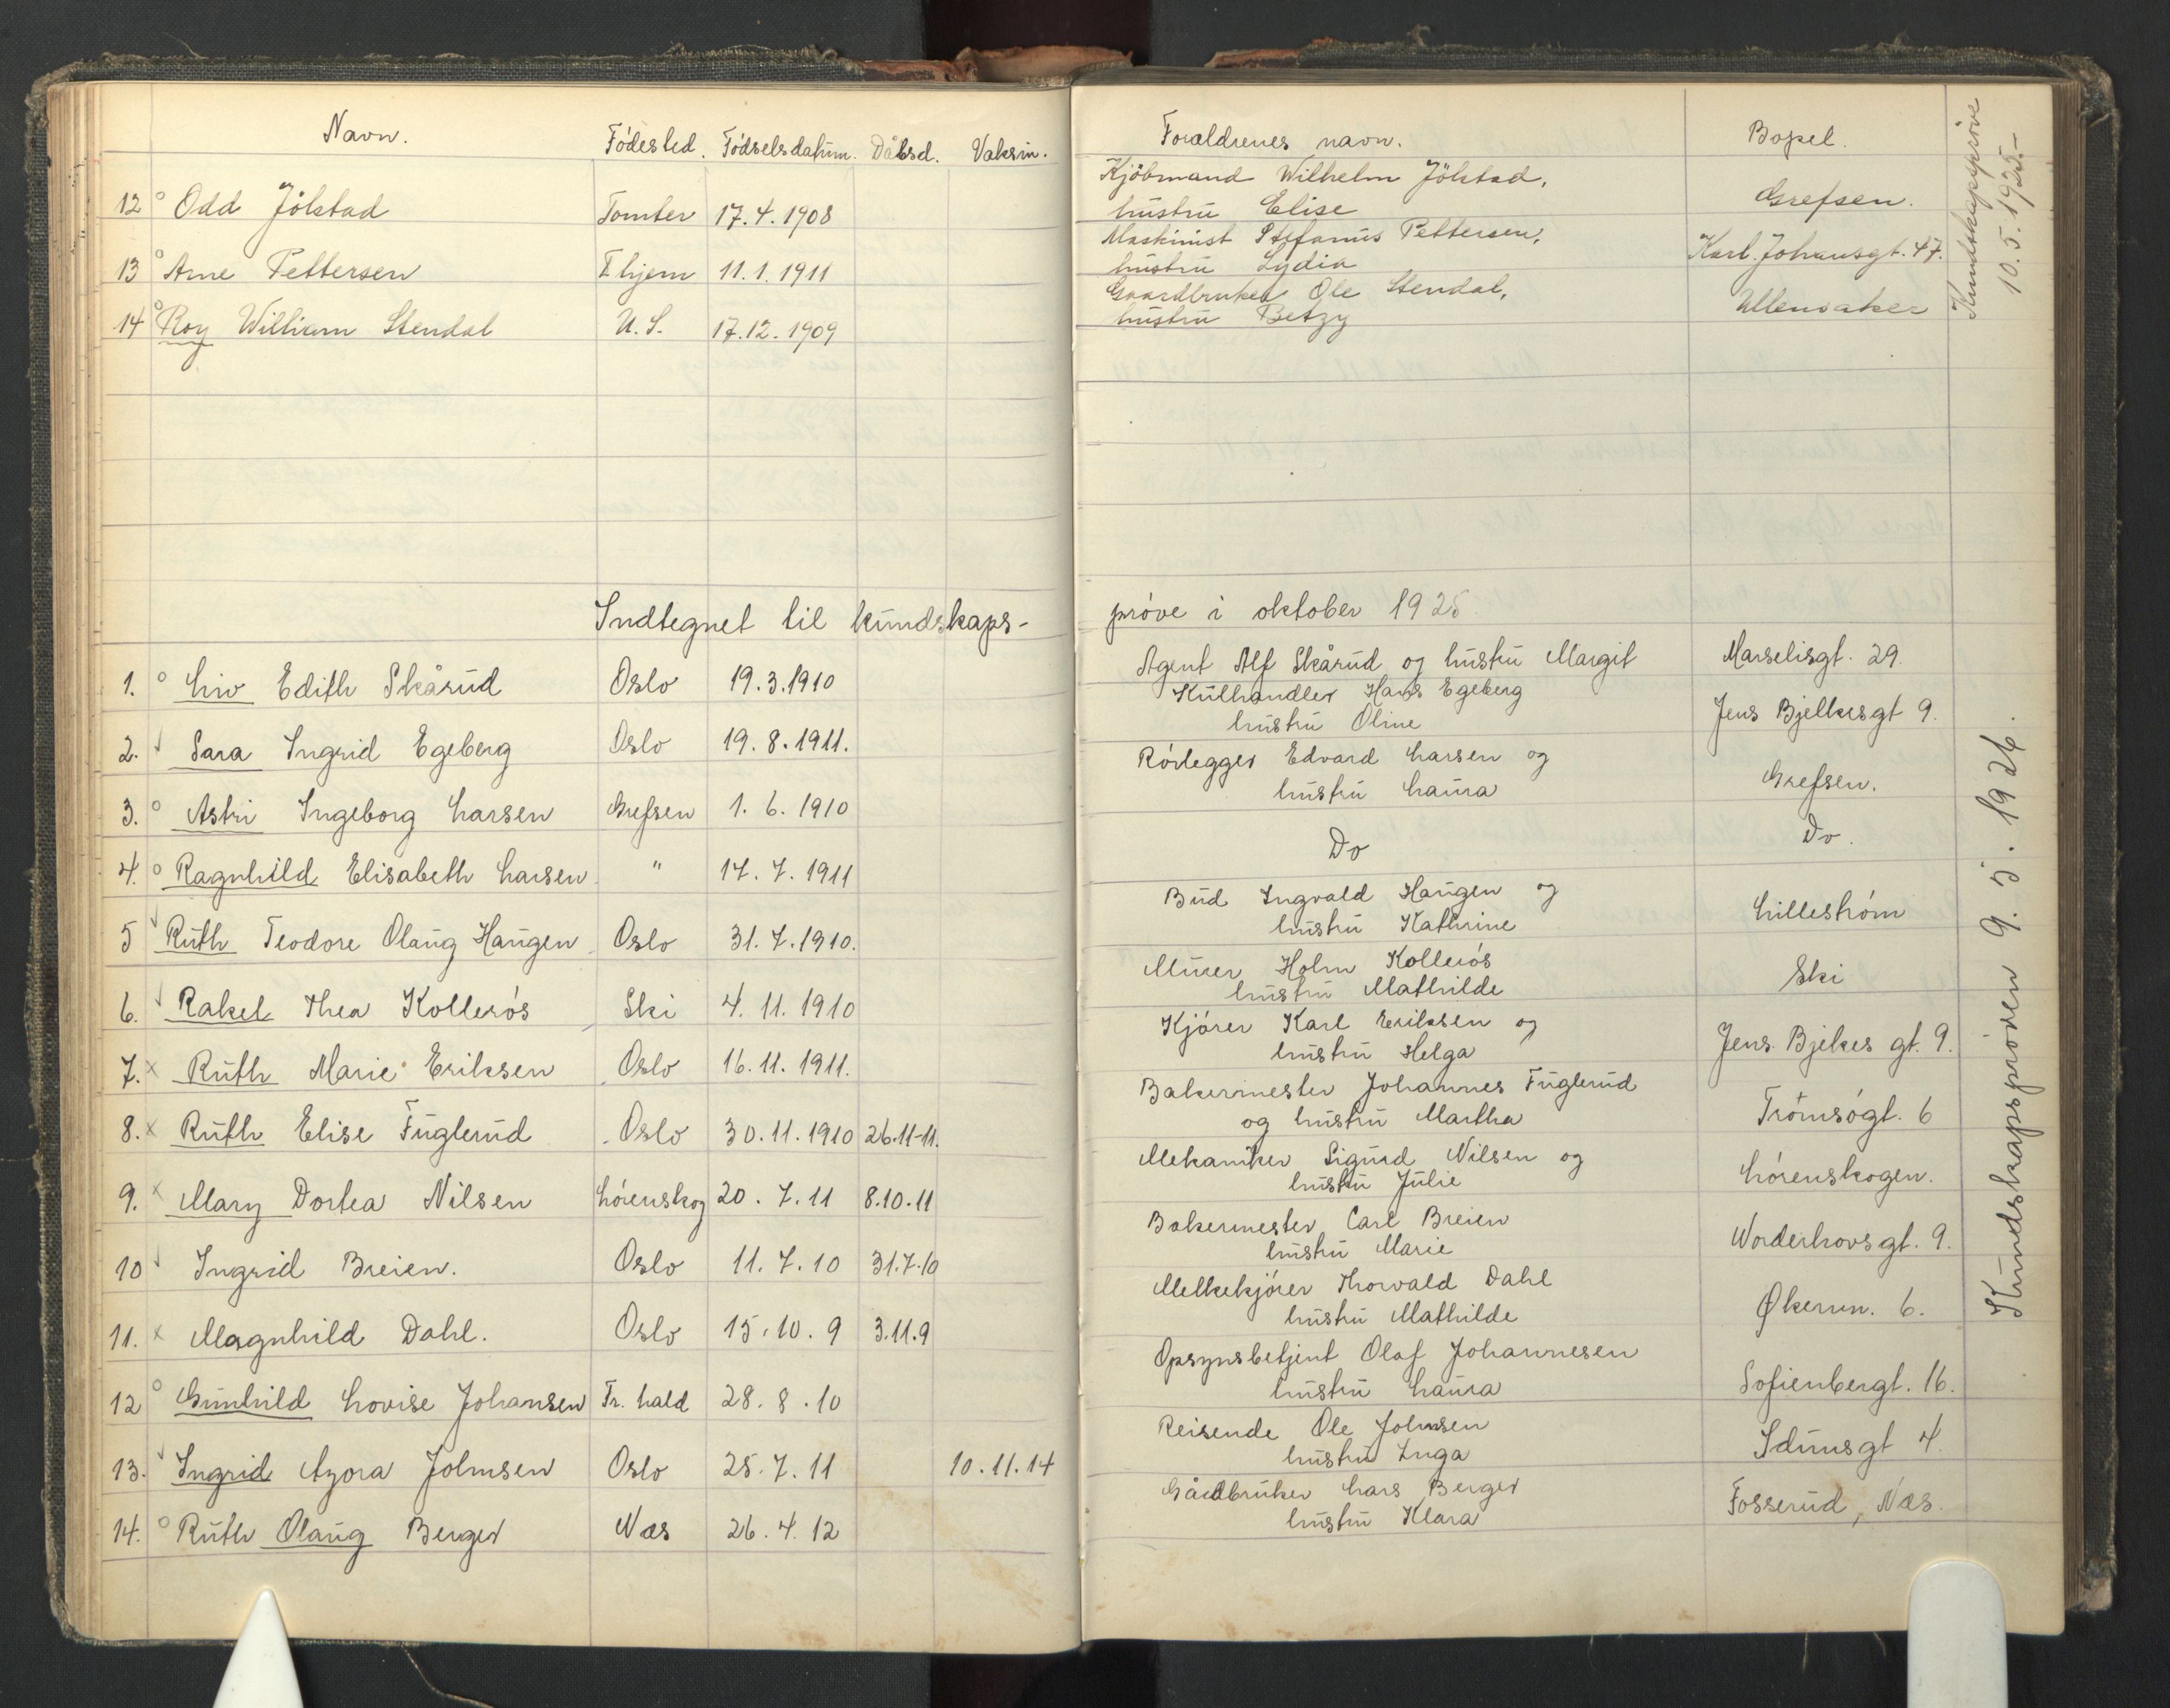 Navn. Fódested. Fódselsdatum. Dåbsd. Vaksin.
12 ° Odd Jölstad Tomter 17.4.1908
13 ° Arne Pettersen T.hjem 11.1.1911
14 ° Roy William Stendal U.S. 17.12.1909
Indtegnet til kundskaps-
1. ° Liv Edith Skårud Oslo 19.3.1910
2. Sara Ingrid Egeberg Oslo 19.8.1911.
3. ° Astri Ingeborg Larsen Grefsen 1.6.1910
4. ° Ragnhild Elisabeth Larsen " 17.7.1911
5 Ruth Teodore Olaug Haugen Oslo 31.7.1910.
6. Rakel Thea Kollerós Ski 4.11.1910
7. x Ruth Marie Eriksen Oslo 16.11.1911.
8. x Ruth Elise Fuglerud Oslo 30.11.1910 26.11-11.
9. x Mary Dortea Nilsen Lórenskog 20.7.11 8.10.11
10 Ingrid Breien. Oslo 11.7.10 31.7.10
11. x Magnhild Dahl. Oslo 15.10.9 3.11.9
12 ° Gunhild Lovise Johansen Fr. hald 28.8.10
13. Ingrid Azora Johnsen Oslo 25.7.11 10.11.14
14. ° Ruth Olaug Berger Næs 26.4.12
Forældrenes navn. Bopel.
Kjöbmand Wilhelm Jölstad,
hustru Elise Grefsen.
Maskinist Stefanus Pettersen,
hustru Lydia Karl Johansgt. 47.
Gaardbruker Ole Stendal,
hustru Betzy Ullensaker
Kundskapspröve
10.5.1925.-
próve i oktober 1925.
Agent Alf Skårud og hustru Margit Marselisgt. 29.
Kulhandler Hans Egeberg
hustru Oline Jens Bjelkesgt 9.
Rórlegger Edvard Larsen og
hustru Laura Grefsen.
Do Do.
Bud Ingvald Haugen og
hustru Kathrine Lillestróm
Murer Holm Kollerós
hustru Mathilde Ski
Kjórer Karl Eriksen og
hustru Helga Jens Bjelkes gt. 9.
Bakermester Johannes Fuglerud
og hustru Martha Trómsógt. 6
Mekaniker Sigurd Nilsen og
hustru Julie Lórenskogen.
Bakermester Carl Breien
hustru Marie Vorderhovsgt. 9.
Melkekjórer Thorvald Dahl
hustru Mathilde Økernv. 6.
Opsynsbetjent Olaf Johannesen
hustru Laura Sofienbergt. 16.
Reisende Ole Johnsen
hustru Inga Idunsgt 4.
Gårdbruker Lars Berger
hustru Klara Fosserud, Næs.
Kundskapspróven 9.5.1926.